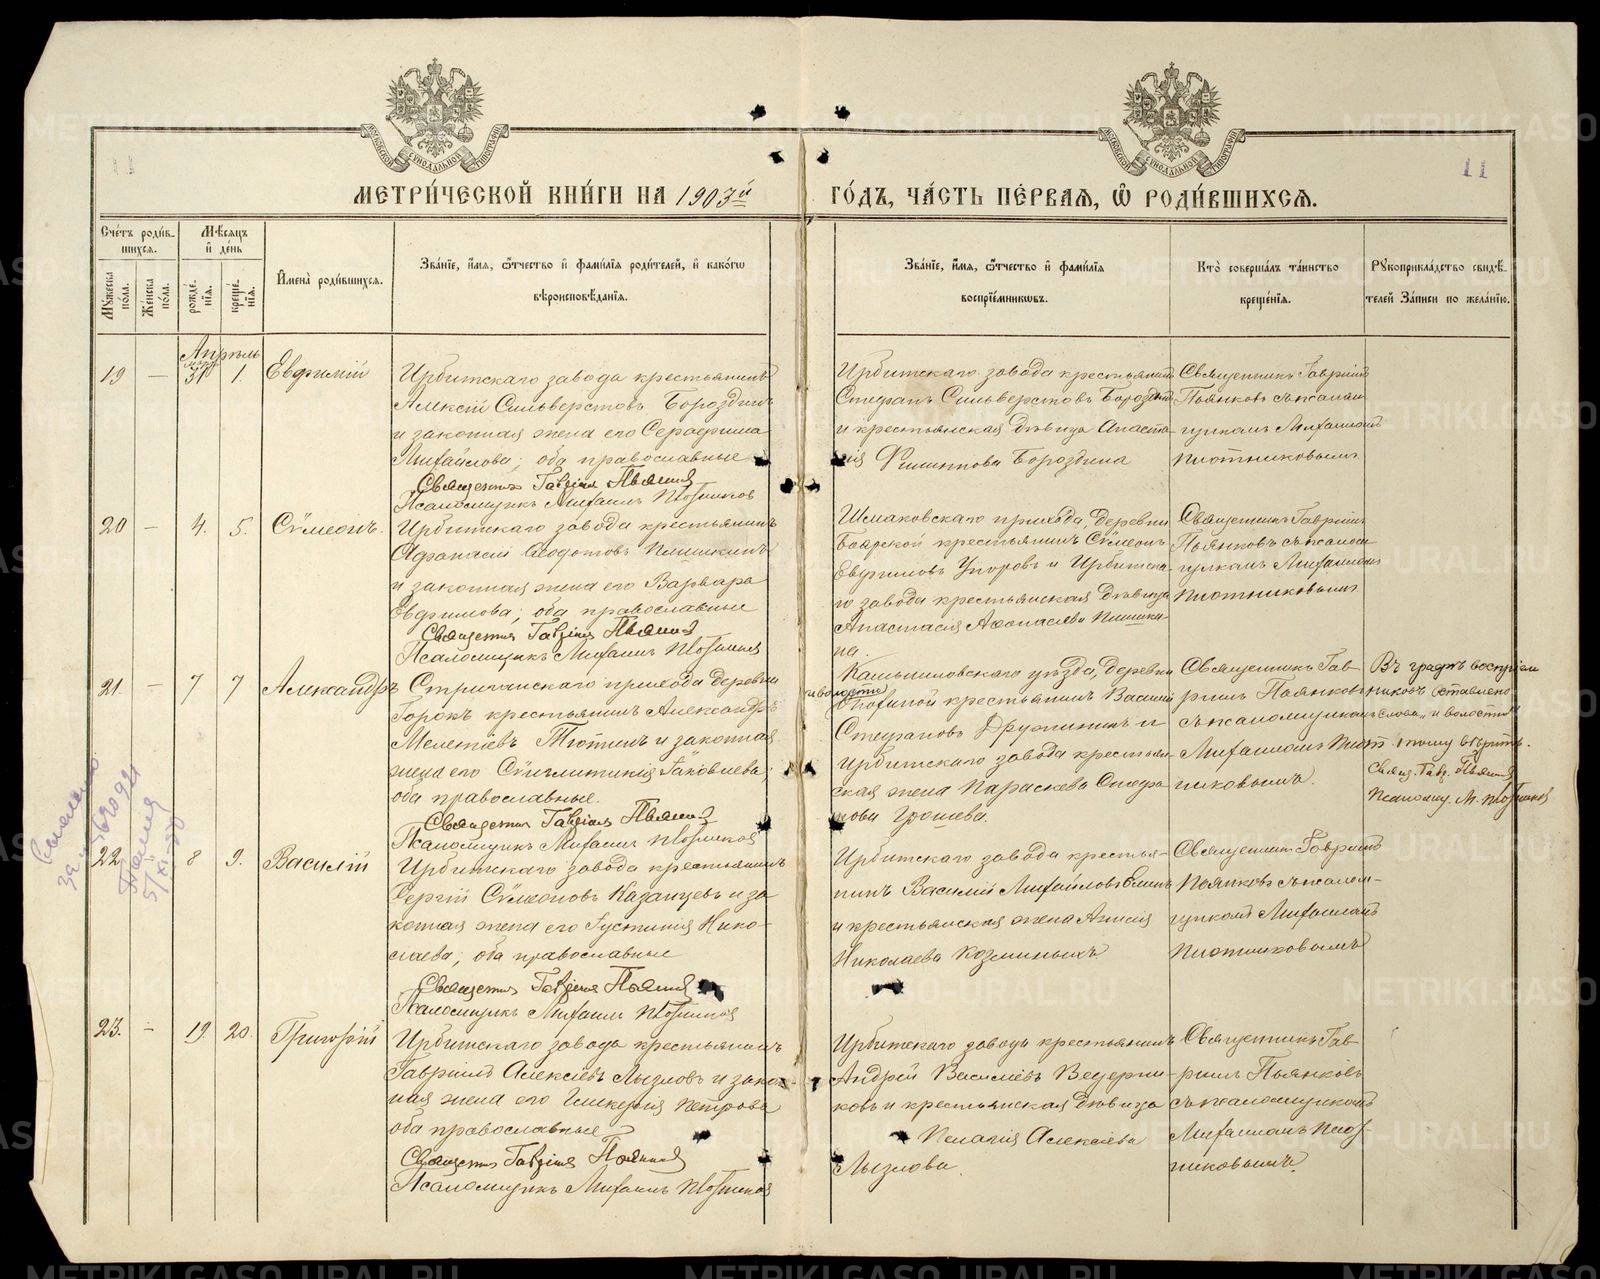 МЕТРИ́ЧЕСКОЙ КНИ́ГИ НА 1903й
ГО́ДЪ, ЧА́СТЬ ПЕ́РВАЯ, Ѡ҆ РОДИ́ВШИХСЯ.
11
11
Сче́тъ роди́в-
шихся.
Мꙋ́жеска
пола.
Же́нска
пола.
Мѣ́сяцъ
и҆ де́нь
рожде́-
нїя.
креще́-
нїя.
И҆мена̀ роди́вшихся.
Зва́нїе, и҆́мя, ѻ҆́тчество и҆ фами́лїя роди́телей, и҆ како́гѡ
вѣроисповѣ́данїя.
Зва́нїе, и҆́мя, ѻ҆́тчество и҆ фами́лїя
воспрїе́мникѡвъ.
Кто̀ соверша́лъ та́инство
креще́нїя.
Рꙋкоприкла́дство свидѣ́-
телей За́писи по жела́нїю.
Апрѣль
19 — 31 1. Евфимій
Ирбитскаго завода крестьянинъ
Алексій Сильверстовъ Бороздинъ
и законная жена его Серафима
Михайлова; оба православные
Священникъ Гавріилъ Пьянковъ
Псаломщикъ Михаилъ Плотниковъ
Ирбитскаго завода крестьянинъ
Стефанъ Сильверстовъ Бороздинъ
и крестьянская дѣвица Анаста-
сія Филиппова Бороздина
Священникъ Гавріилъ
Пьянковъ съ псалом-
щикомъ Михаиломъ
Плотниковымъ
20 — 4. 5. Сѵмеонъ.
Ирбитскаго завода крестьянинъ
Афанасій Ѳеодотовъ Пшишкинъ
и законная жена его Варвара
Евфимова; оба православные
Священникъ Гавріилъ Пьянковъ
Псаломщикъ Михаилъ Плотниковъ
Шмаковскаго прихода, деревни
Боярской крестьянинъ Сѵмеонъ
Евфимовъ Упоровъ и Ирбитска-
го завода крестьянская дѣвица
Анастасія Аѳонасіева Пшишки-
на.
Священникъ Гавріилъ
Пьянковъ съ псалом-
щикомъ Михаиломъ
Плотниковымъ
21. — 7 7 Александръ
Стриганскаго прихода деревни
Горокъ крестьянинъ Александръ
Мелетіевъ Тютинъ и законная
жена его Сѵнглитикія Іаковлева;
оба православные.
Священникъ Гавріилъ Пьянковъ
Псаломщикъ Михаилъ Плотниковъ
Камышловскаго уѣзда, деревни
и волости
крестьянинъ Василій
Стефановъ Дружининъ и
Ирбитскаго завода крестьян-
ская жена Параскева Стефа-
нова Грошева.
Священникъ Гав-
ріилъ Пьянковъ
съ псаломщикомъ
Михаиломъ Плот-
никовымъ.
Въ графѣ воспріем
никовъ вставлено
слова „и волости"
тому вѣрить.
Свящ. Гавр. Пьянковъ
Псаломщ. М. Плотниковъ
22. 8 9. Василій
Ирбитскаго завода крестьянинъ
Сергій Сѵмеоновъ Казанцевъ и за
конная жена его Іустинія Нико-
лаева; оба православные
Священникъ Гавріилъ Пьянковъ
Псаломщикъ Михаилъ Плотниковъ
Ирбитскаго завода крестья-
нинъ Василій Михайловъ
и крестьянская жена Анисія
Николаева Козьминыхъ
Священникъ Гавріилъ
Пьянковъ съ псалом-
щикомъ Михаиломъ
Плотниковымъ
23. — 19. 20. Григорій
Ирбитскаго завода крестьянинъ
Гавріилъ Алексіевъ Лызловъ и закон-
ная жена его Гликерія Петрова
оба православные
Священникъ Гавріилъ Пьянковъ
Псаломщикъ Михаилъ Плотниковъ
Ирбитскаго завода крестьянинъ
Андрей Василіевъ Ведерни-
ковъ и крестьянская дѣвица
Пелагія Алексіева
Лызлова.
Священникъ Гав-
ріилъ Пьянковъ
съ псаломщикомъ
Михаиломъ Плот-
никовымъ.
METRIKI.GASO-URAL.RU